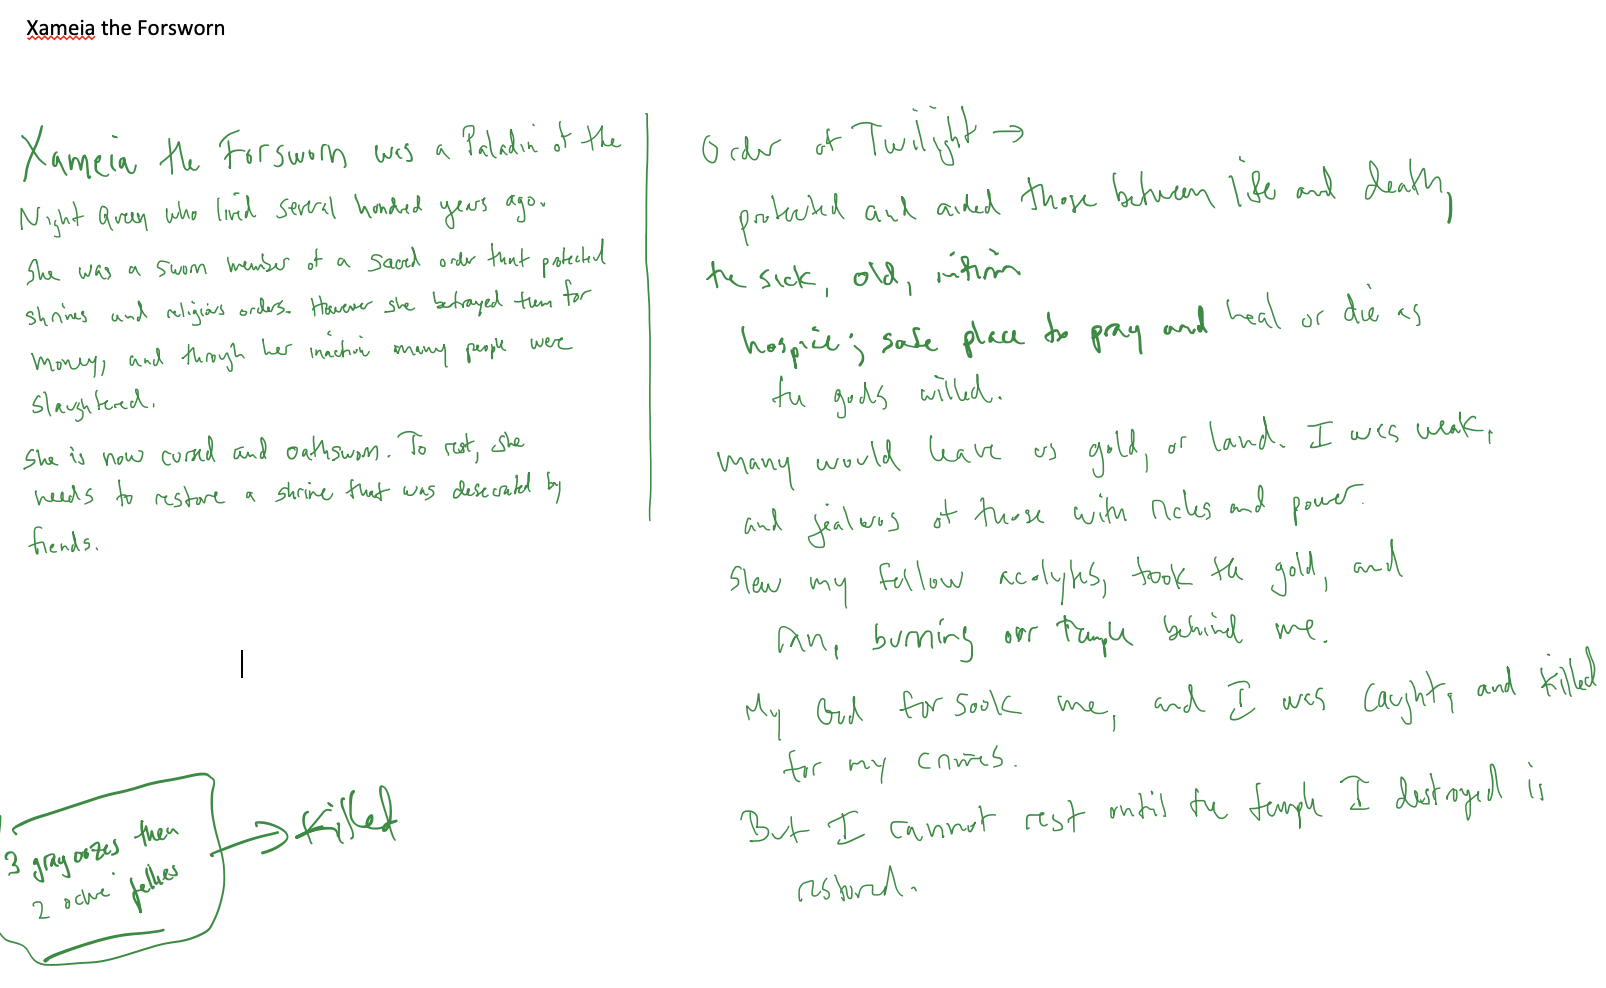 Xameia the Forsworn
Xameia the Forsworn was a Paladin of the
Night Queen who lived several hundred years ago.
She was a sworn member of a sacred order that protected
shrines and religious orders. However she betrayed them for
money, and through her inaction many people were
slaughtered.
She is now cursed and oathsworn. To rest, she
needs to restore a shrine that was desecrated by
fiends.
Order of Twilight →
protected and aided those between life and death,
the sick, old, infirm
hospice; safe place to pray and heal or die as
the gods willed.
many would leave us gold, or land. I was weak,
and jealous of those with riches and power.
Slew my fellow acolytes, took the gold, and
ran, burning our temple behind me.
My God forsook me, and I was caught, and killed
for my crimes.
But I cannot rest until the temple I destroyed is
restored.
3 gray oozes then
2 ochre jellies
→ Killed